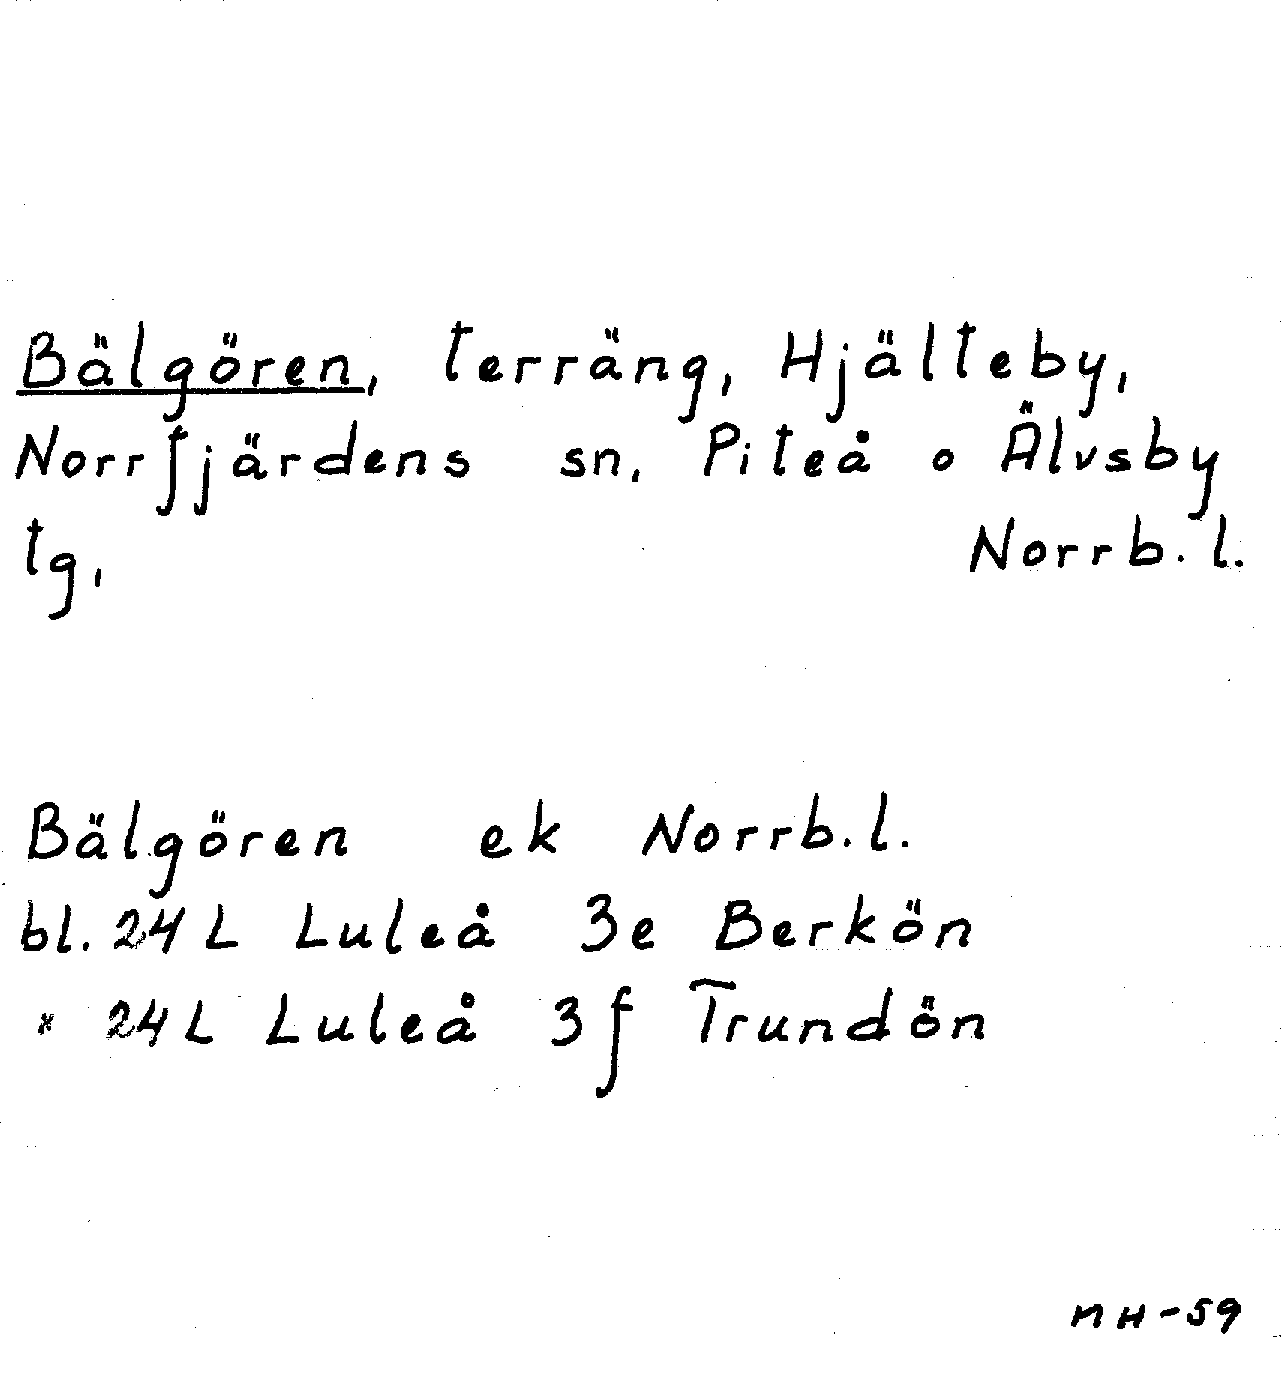 Bälgören, terräng, Hjälteby,
Norrfjärdens sn, Piteå o Älvsby
tg, Norrb. l.
Bälgören ek Norrb. l.
bl. 24 L Luleå 3e Berkön
" 24 L Luleå 3f Trundön
nH-59